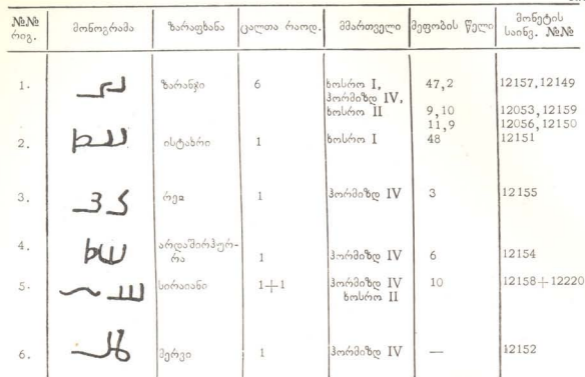 №№ რიგ. მონოგრამა ზარაფხანა ცალთა რაოდ. მმართველი მეფობის წელი მონეტის საინვ. №№
1. ზარანჯი 6 ხოსრო I, 47,2 12157,12149
ჰორმიზდ IV,
ხოსრო II 9,10 12053,12159
11,9 12056,12150
2. ისტახრი 1 ხოსრო I 48 12151
3. რეი 1 ჰორმიზდ IV 3 12155
4. არდაშირხურ-
რა 1 ჰორმიზდ IV 6 12154
5. სირაიანი 1+1 ჰორმიზდ IV 10 12158+12220
ხოსრო II
6. მერვი 1 ჰორმიზდ IV — 12152